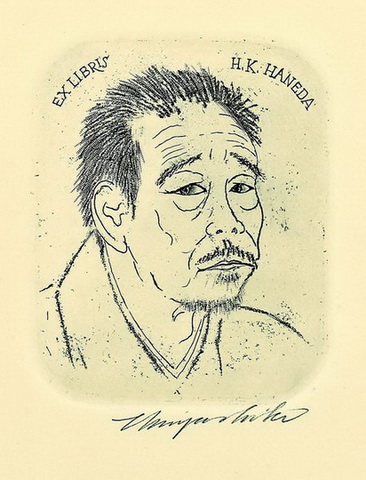 EX LIBRIS
H.K. HANEDA